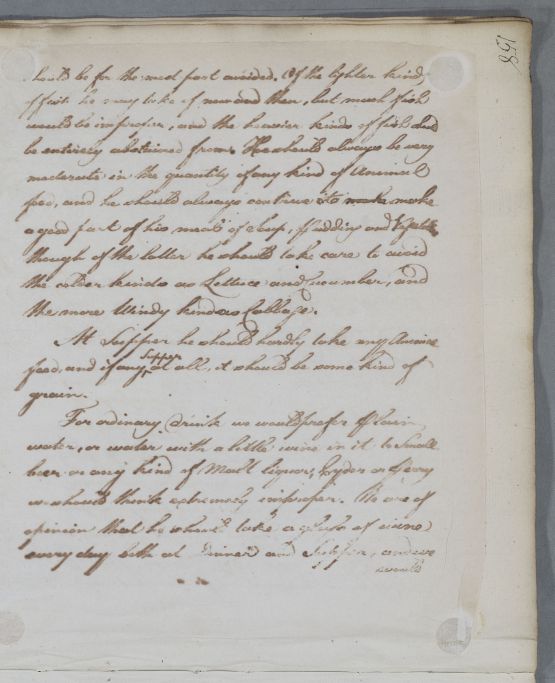 158
should be for the most part avoided. Of the lighter kinds
of fish he may take of now and then, but much fish
would be improper, and the heavier kinds of fish should
be entirely abstained from. He should always be very
moderate in the quantity of any kind of Animal
food, and he should always contrive to make make
a good part of his meal of Soup, Pudding and
though of the latter he should take care to avoid
the colder kinds as Lettuce and Cucumber, and
the more Windy kind as Cabbage.
At Supper he should hardly take any Animal
food, and if any Supper at all, it should be some kind of
grain.
For ordinary drink we would prefer Plain
water, or water with a little wine in it to Small
beer or any kind of Malt liquor, Cyder or Perry
we should think extremely improper. We are of
opinion that he should take a glass of wine
every day both at Dinner and Supper, and we
would